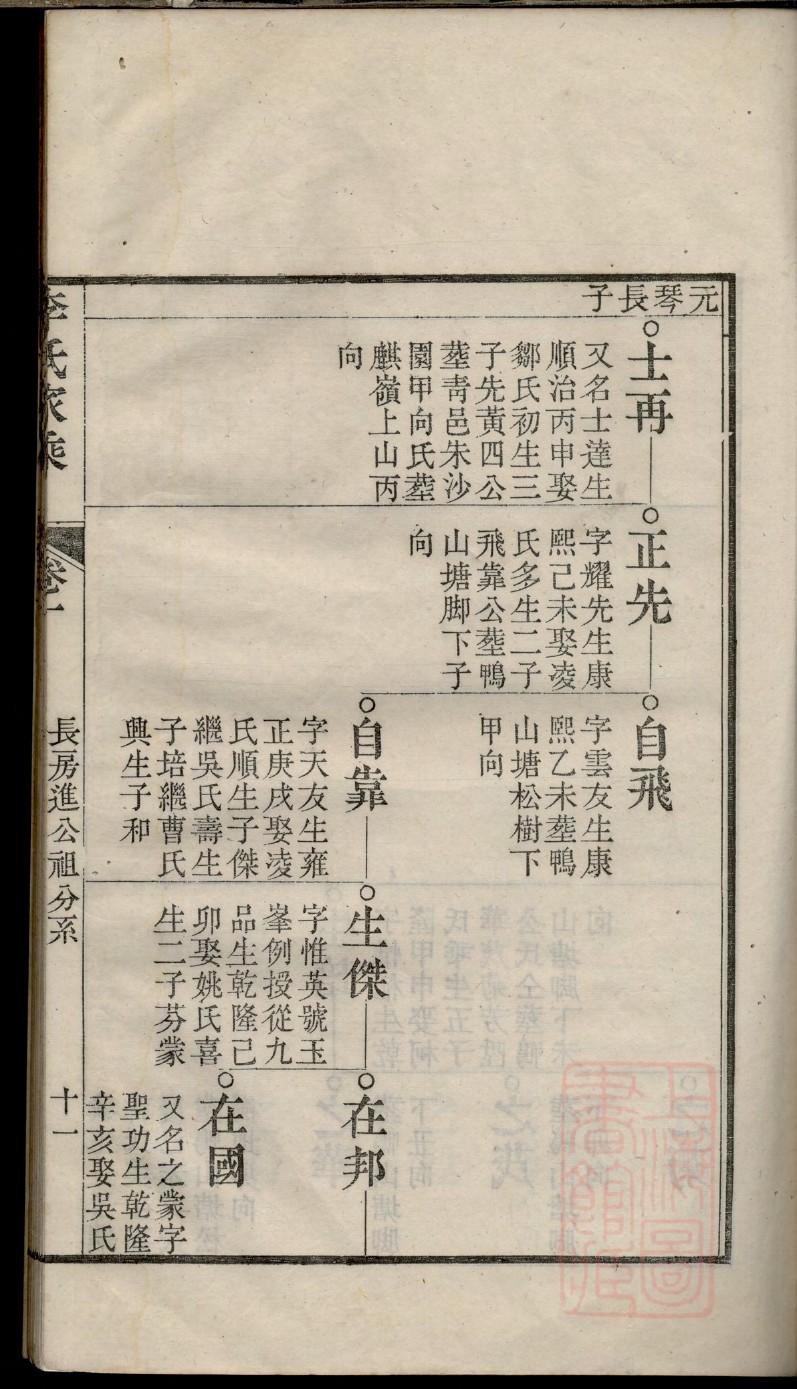 元琴長子
士再
又名士達生
順治丙申娶
鄒氏初生三
子先黃四公
塟靑邑朱沙
園甲向氏塟
麒嶺上山丙
向
正先
字耀先生康
熙己未娶凌
氏多生二子
飛靠公塟鴨
山塘脚下子
向
自飛
字雲友生康
熙乙未塟鴨
山塘松樹下
甲向
自靠
字天友生雍
正庚戌娶凌
氏順生子傑
繼吳氏壽生
子培繼曹氏
興生子和
生傑
字惟英號玉
峯例授從九
品生乾隆己
卯娶姚氏喜
生二子芬蒙
在邦
在國
又名之蒙字
聖功生乾隆
辛亥娶吳氏
李氏家乘
卷一
長房進公祖分系
十一